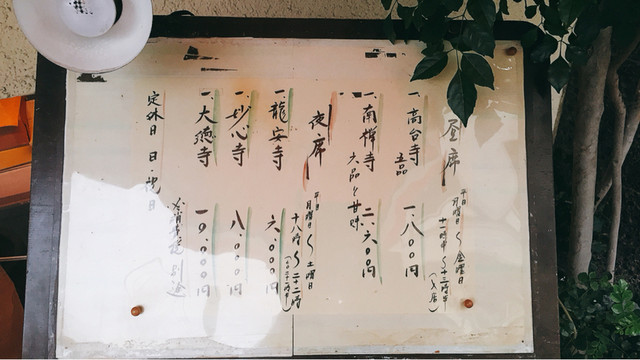 昼席
平日 月曜日〜金曜日
十一時半〜十三時半
(入店)
一、高台寺 一、八〇〇円
五品
一、南禅寺 二、六〇〇円
六品と甘味
夜席
平日 月曜日〜土曜日
十八時〜二十二時
一、龍安寺 六、〇〇〇円
一、妙心寺 八、〇〇〇円
一、大徳寺 一〇、〇〇〇円
別途
定休日 日・祝日